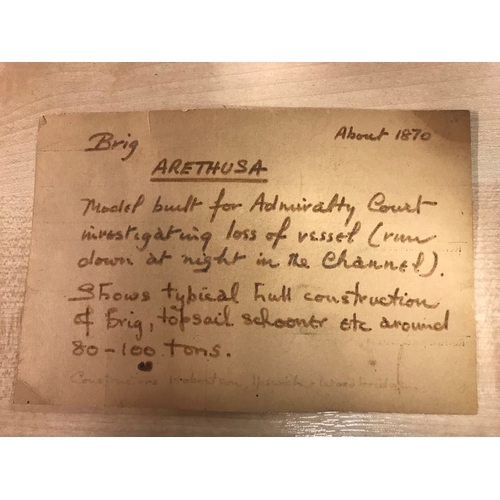 Brig About 1870
ARETHUSA
Model built for Admiralty Court
investigating loss of vessel (run
down at night in the Channel).
Shows typical hull construction
of Brig, topsail schooner etc around
80-100 tons.
Robertson, Ipswich & Woodbridge